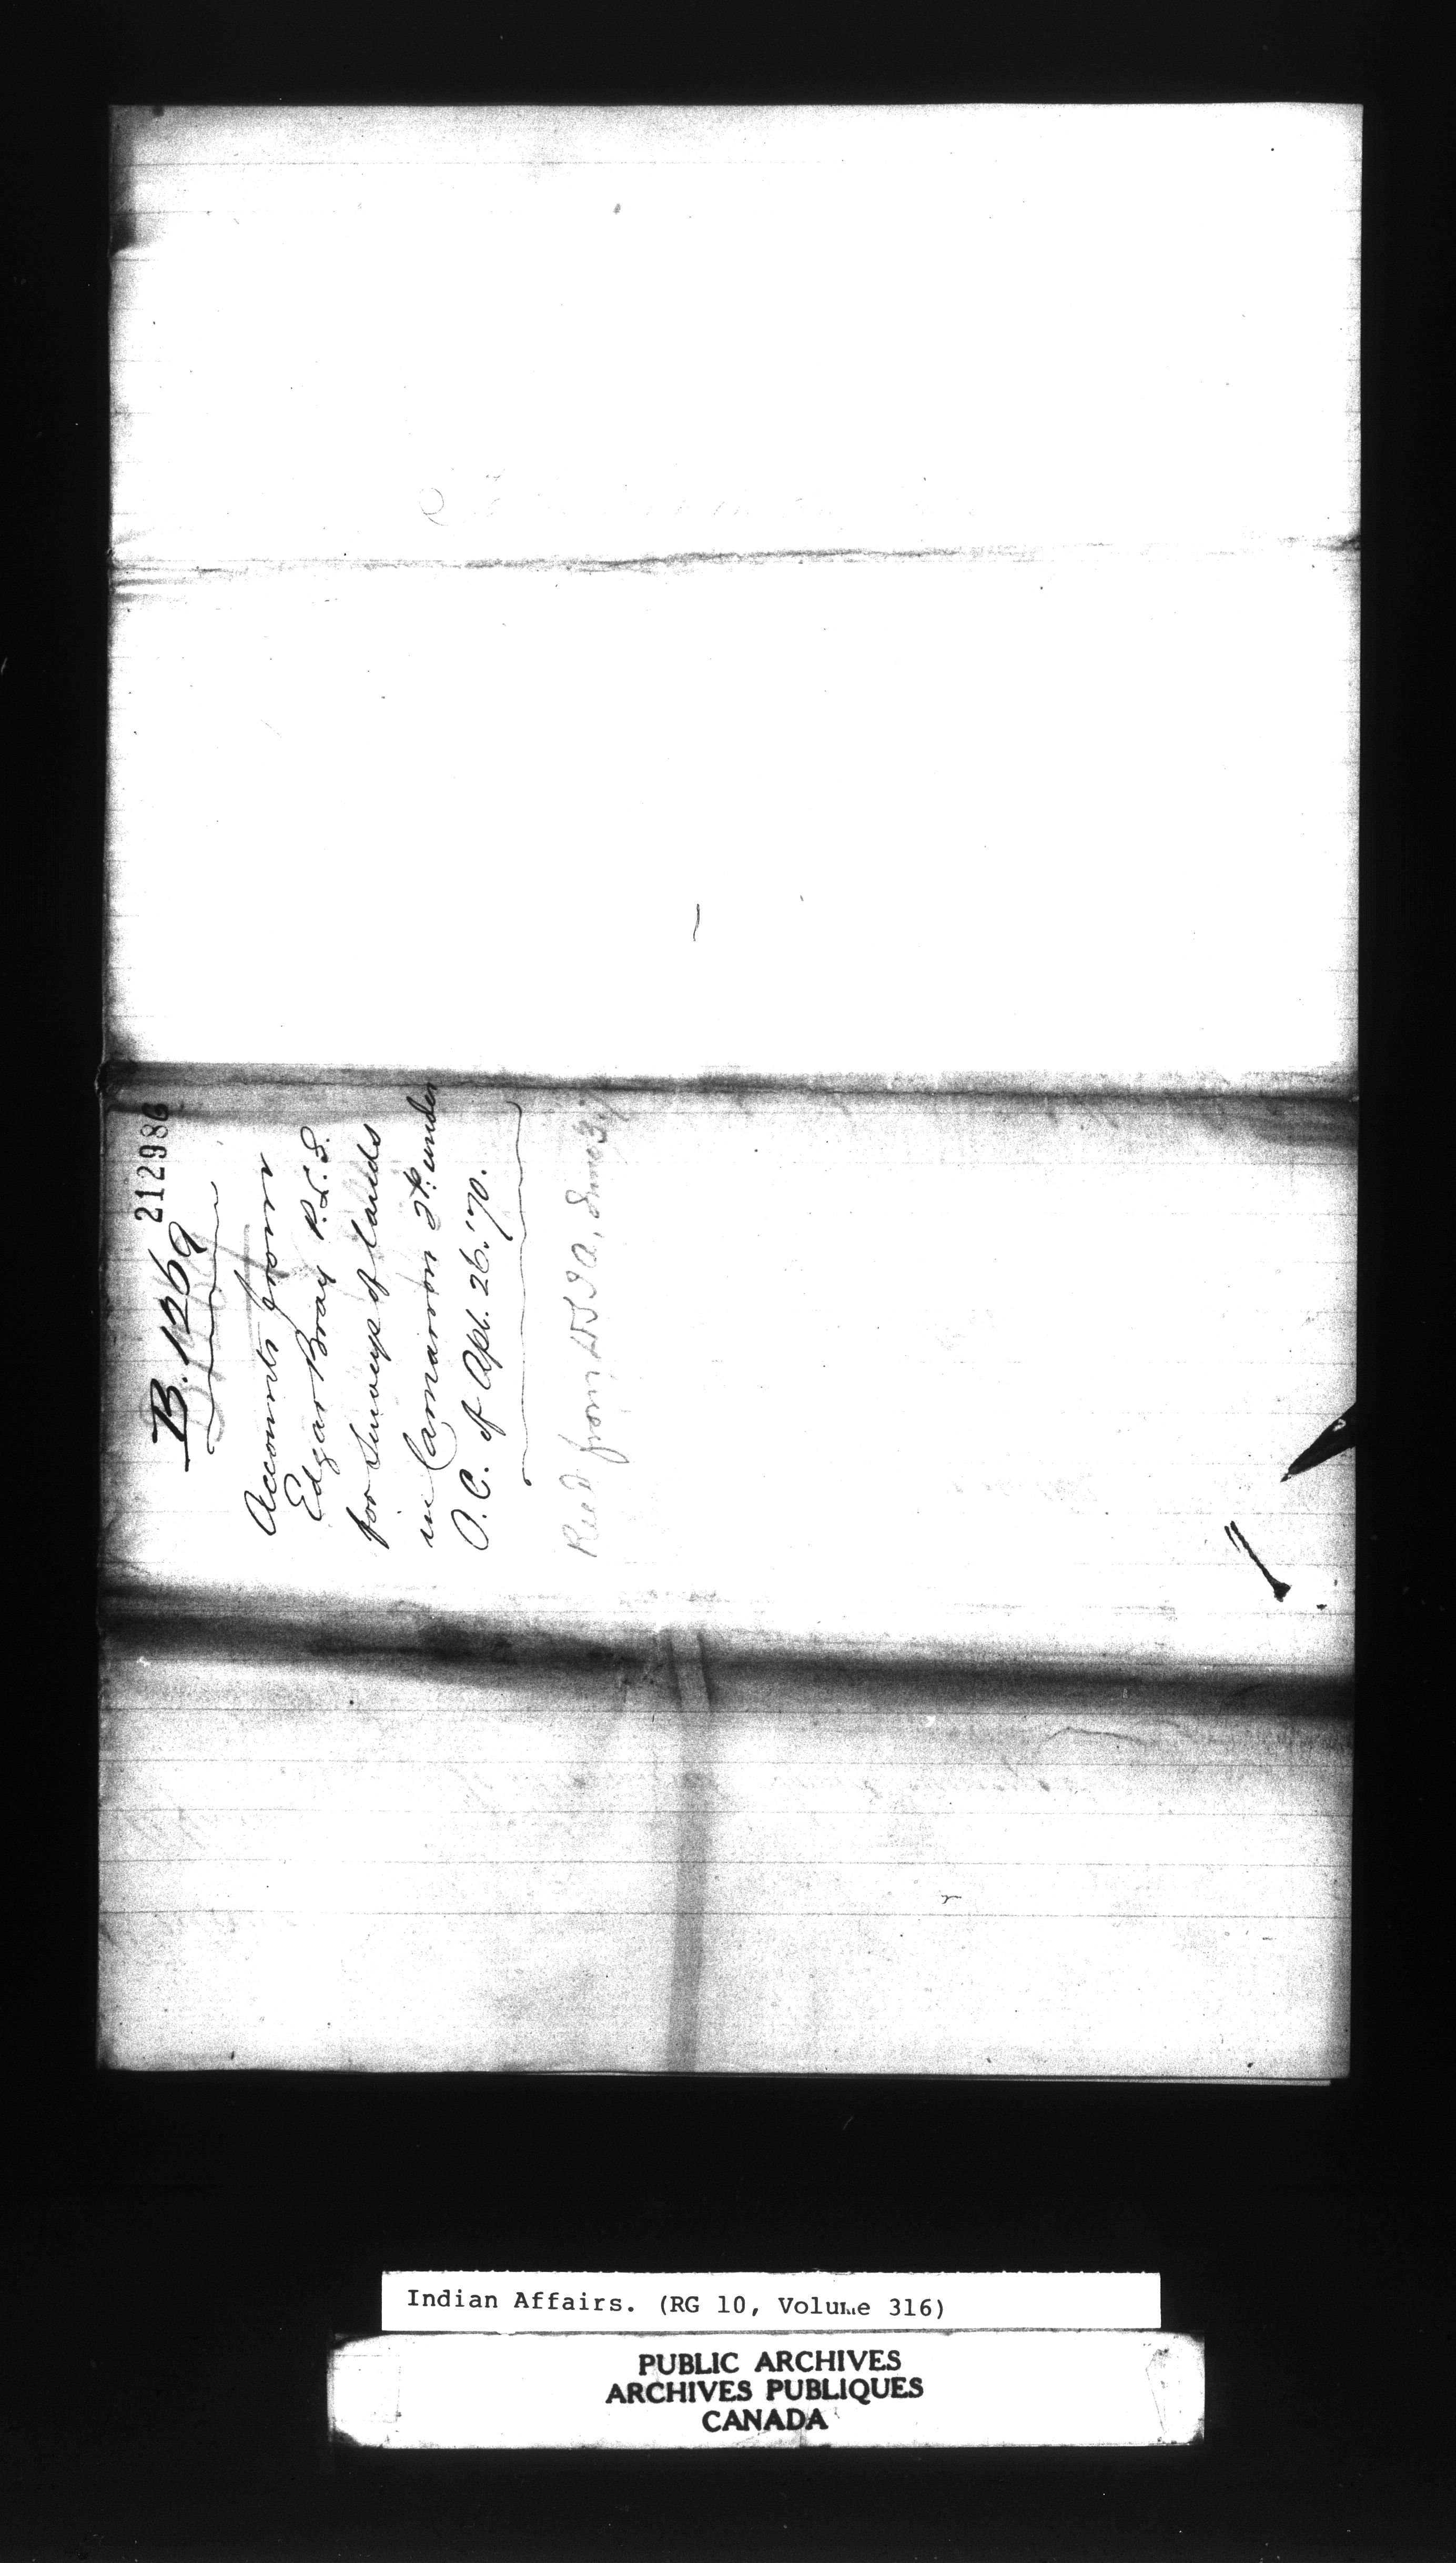 212986
B. 1269
Accounts from
Edgar Bray P.L.S.
for Surveys of lands
in Carnarvon Tp. under
O.C. of Apl. 26. '70.
Recd from
Indian Affairs. (RG 10, Volume 316)
PUBLIC ARCHIVES
ARCHIVES PUBLIQUES
CANADA